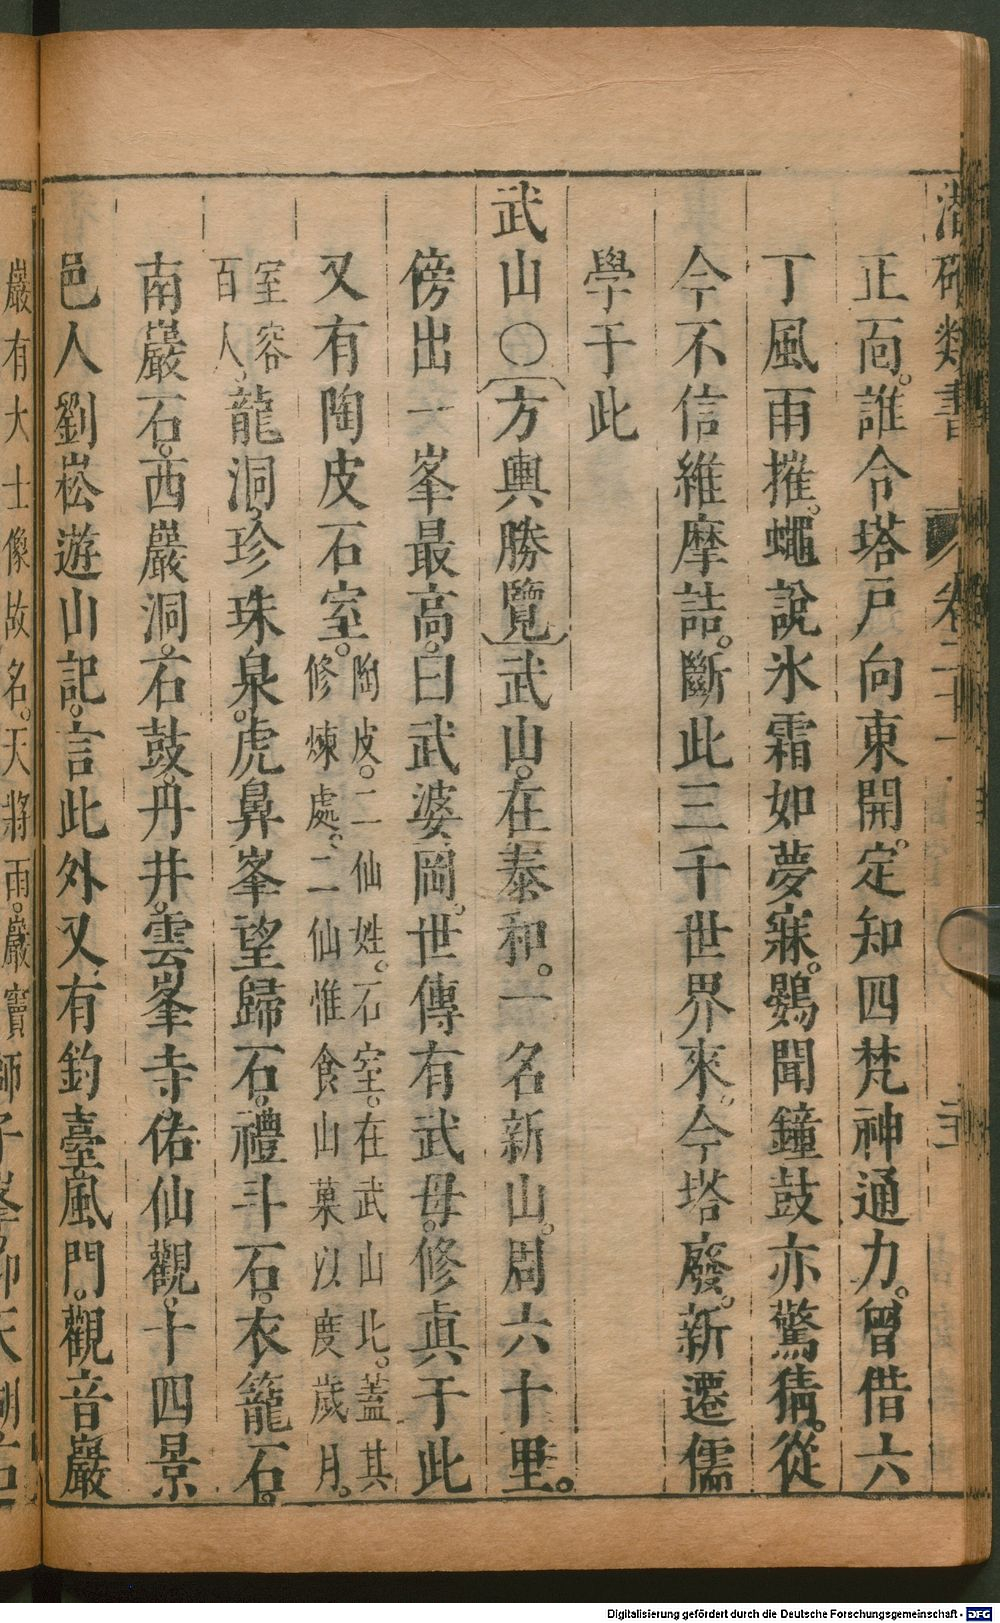 潛确類書 卷二十一
正面。誰令塔戸向東開。定知四梵神通力。曾借六
丁風雨摧。蠅說氷霜如夢寐。鷃聞鐘鼓亦驚猜。從
今不信維摩詰。斷此三千世界來。今塔廢。新遷儒
學于此
武山○〔方輿勝覽〕武山。在泰和。一名新山。周六十里。
傍出一峯最高。曰武婆岡。世傳有武母。修眞于此
又有陶皮石室。陶皮。二仙姓。石室。在武山北。蓋其
修煉處。二仙惟食山菓以度歲月。
室容
百人。龍洞。珍珠泉。虎鼻峯望歸石。禮斗石。衣籠石。
南巖石。西巖洞。石鼓。丹井。雲峯寺。佑仙觀。十四景
邑人劉崧遊山記。言此外又有釣臺。風門。觀音巖
巖有大士像故名。天將雨。巖竇
Digitalisierung gefördert durch die Deutsche Forschungsgemeinschaft - DFG